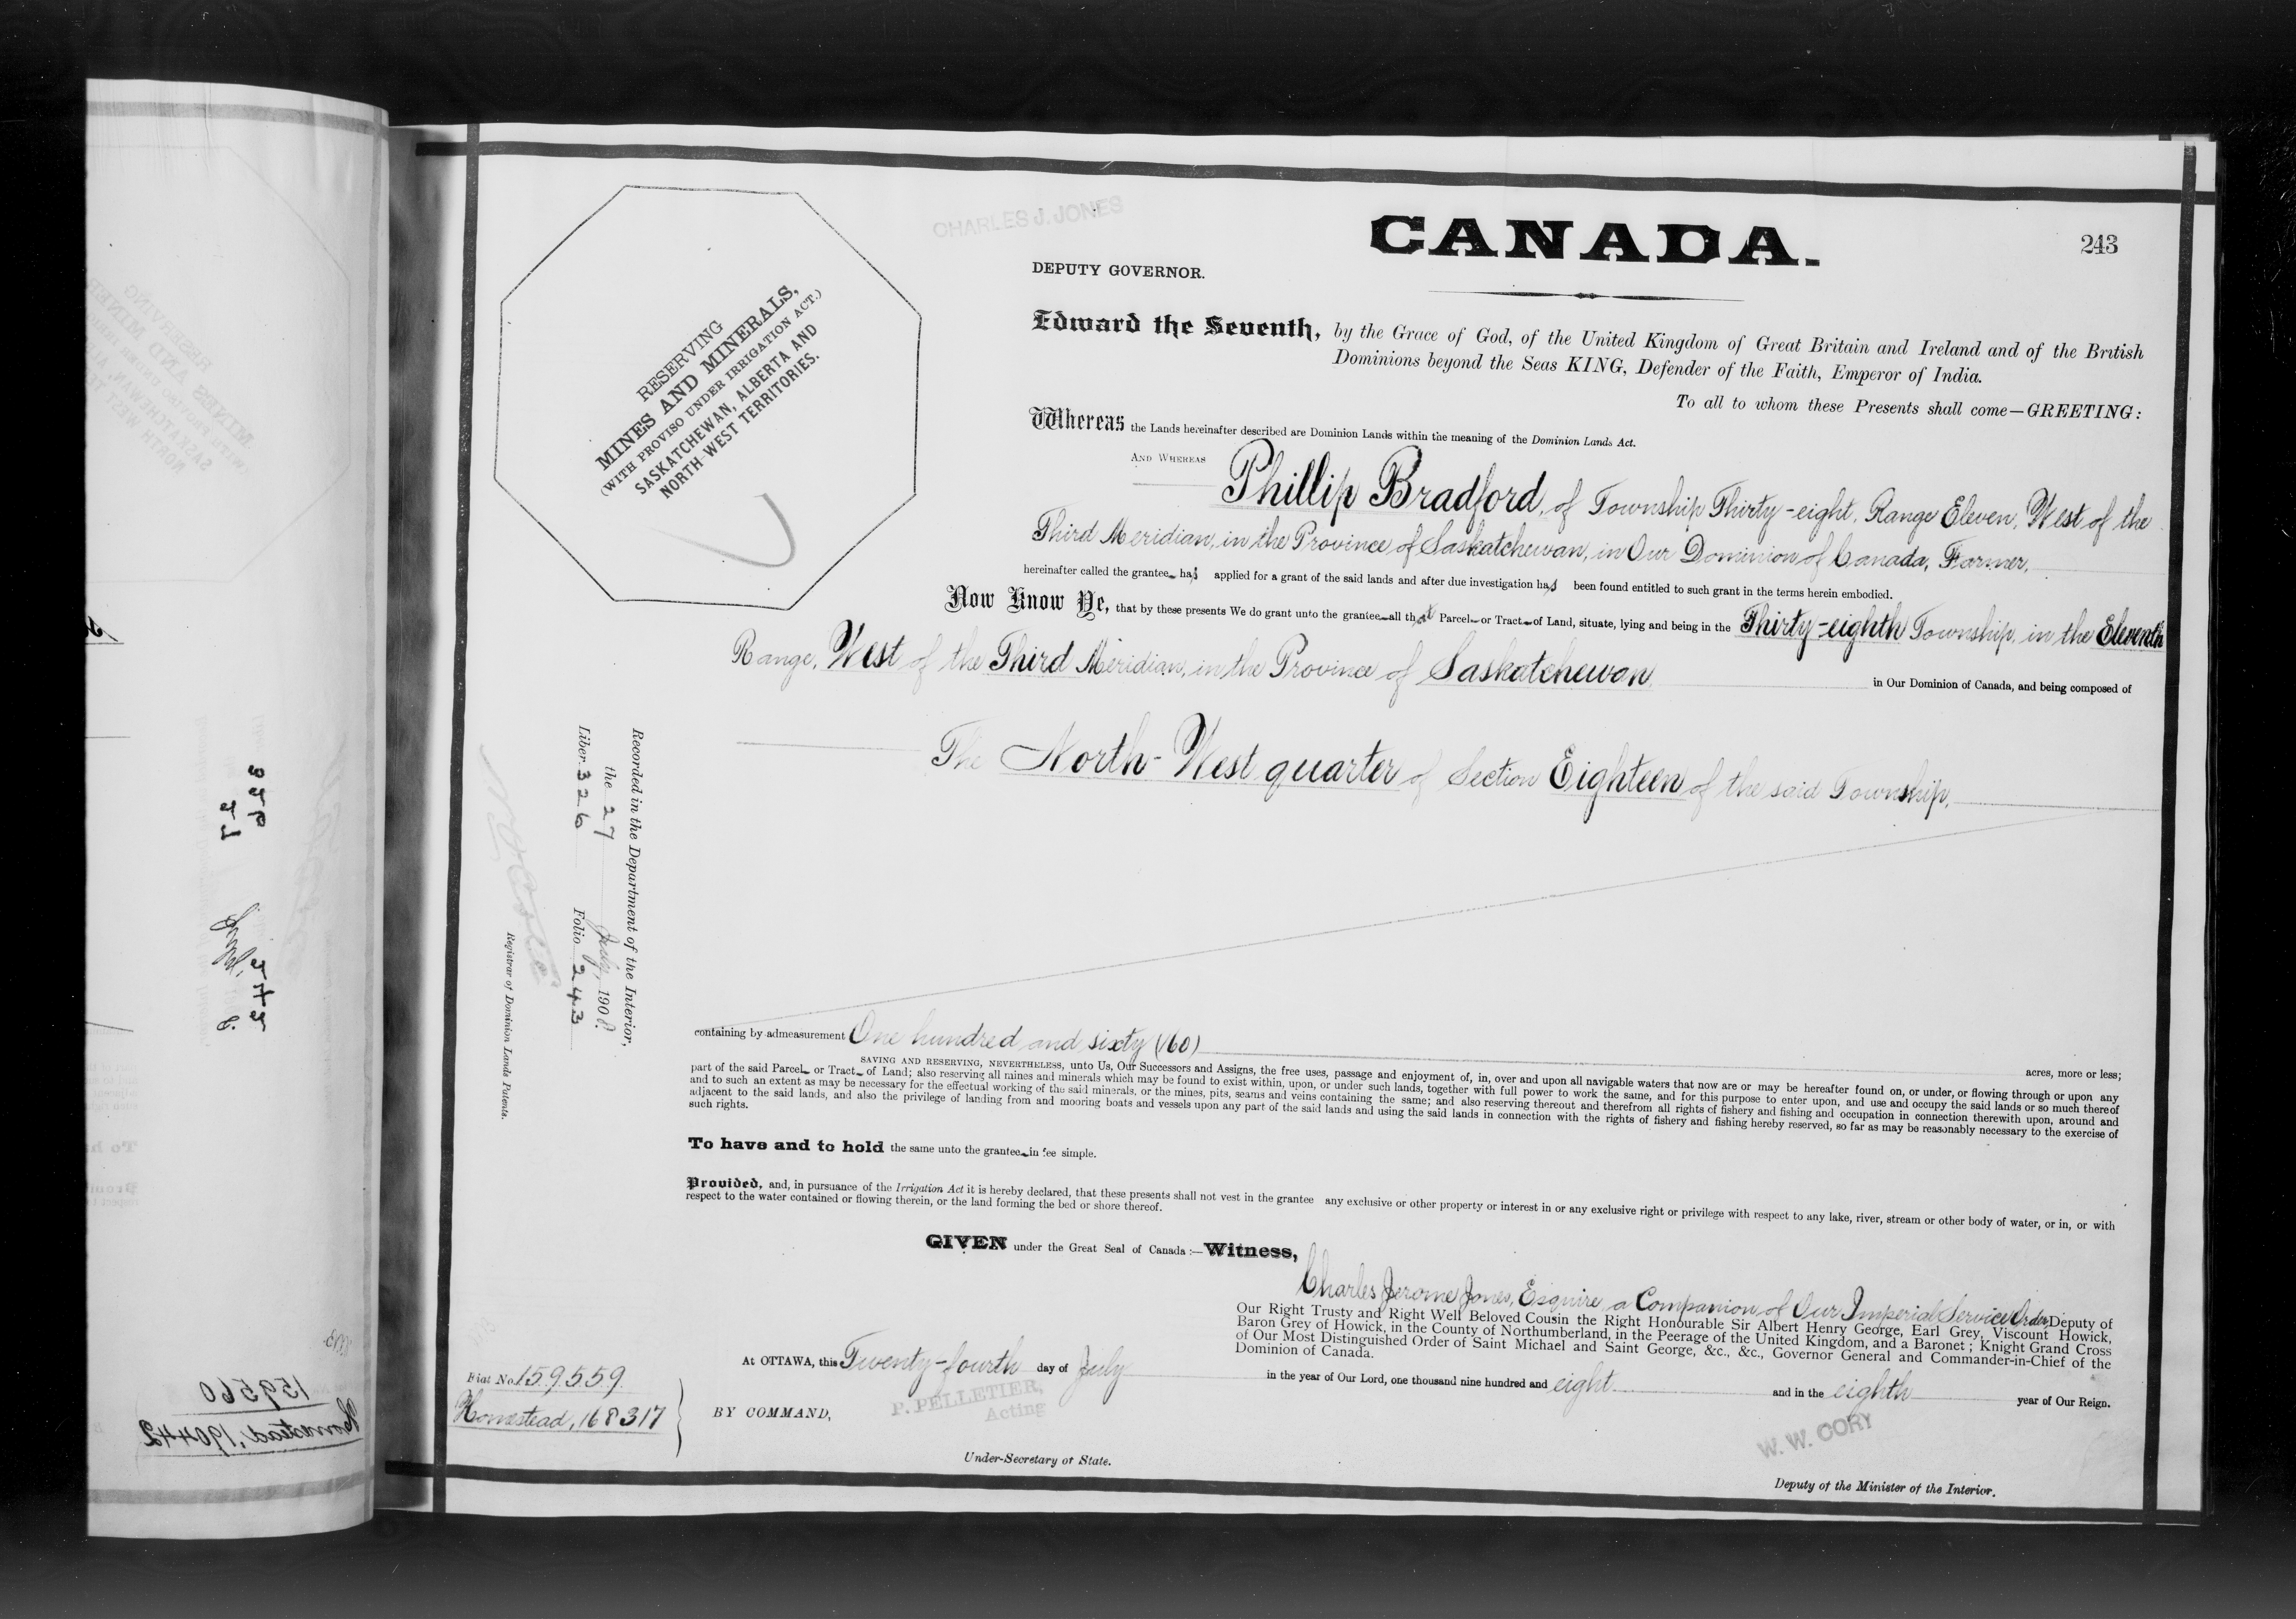 CHARLES J. JONES
CANADA.
243
DEPUTY GOVERNOR.
RESERVING
MINES AND MINERALS,
(WITH PROVISO UNDER IRRIGATION ACT.)
SASKATCHEWAN, ALBERTA AND
NORTH-WEST TERRITORIES.
Edward the Seventh, by the Grace of God, of the United Kingdom of Great Britain and Ireland and of the British
Dominions beyond the Seas KING, Defender of the Faith, Emperor of India.
To all to whom these Presents shall come—GREETING:
Whereas the Lands hereinafter described are Dominion Lands within the meaning of the Dominion Lands Act.
AND WHEREAS Phillip Bradford, of Township Thirty-eight, Range Eleven, West of the
Third Meridian, in the Province of Saskatchewan, in Our Dominion of Canada, Farmer,
hereinafter called the grantee has applied for a grant of the said lands and after due investigation has been found entitled to such grant in the terms herein embodied.
Now Know Ye, that by these presents We do grant unto the grantee all that Parcel or Tract of Land, situate, lying and being in the Thirty-eighth Township, in the Eleventh
Range, West of the Third Meridian, in the Province of Saskatchewan in Our Dominion of Canada, and being composed of
The North-West quarter of Section Eighteen of the said Township,
Recorded in the Department of the Interior,
the 27 July, 1908.
Liber 326 Folio 243
Registrar of Dominion Lands Patents.
containing by admeasurement One hundred and sixty (160) acres, more or less;
SAVING AND RESERVING, NEVERTHELESS, unto Us, Our Successors and Assigns, the free uses, passage and enjoyment of, in, over and upon all navigable waters that now are or may be hereafter found on, or under, or flowing through or upon any
part of the said Parcel or Tract of Land; also reserving all mines and minerals which may be found to exist within, upon, or under such lands, together with full power to work the same, and for this purpose to enter upon, and use and occupy the said lands or so much thereof
and to such an extent as may be necessary for the effectual working of the said minerals, or the mines, pits, seams and veins containing the same; and also reserving thereout and therefrom all rights of fishery and fishing and occupation in connection therewith upon, around and
adjacent to the said lands, and also the privilege of landing from and mooring boats and vessels upon any part of the said lands and using the said lands in connection with the rights of fishery and fishing hereby reserved, so far as may be reasonably necessary to the exercise of
such rights.
To have and to hold the same unto the grantee in fee simple.
Provided, and, in pursuance of the Irrigation Act it is hereby declared, that these presents shall not vest in the grantee any exclusive or other property or interest in or any exclusive right or privilege with respect to any lake, river, stream or other body of water, or in, or with
respect to the water contained or flowing therein, or the land forming the bed or shore thereof.
GIVEN under the Great Seal of Canada:—Witness,
Charles Jerome Jones, Esquire, a Companion of Our Imperial Service Order, Deputy of
Our Right Trusty and Right Well Beloved Cousin the Right Honourable Sir Albert Henry George, Earl Grey, Viscount Howick,
Baron Grey of Howick, in the County of Northumberland, in the Peerage of the United Kingdom, and a Baronet; Knight Grand Cross
of Our Most Distinguished Order of Saint Michael and Saint George, &c., &c., Governor General and Commander-in-Chief of the
Dominion of Canada.
At OTTAWA, this Twenty-fourth day of July in the year of Our Lord, one thousand nine hundred and eight and in the eighth year of Our Reign.
Fiat No. 159559
Homestead, 168317
BY COMMAND,
P. PELLETIER,
Acting
Under-Secretary of State.
W. W. CORY
Deputy of the Minister of the Interior.
159560
Homestead, 190442